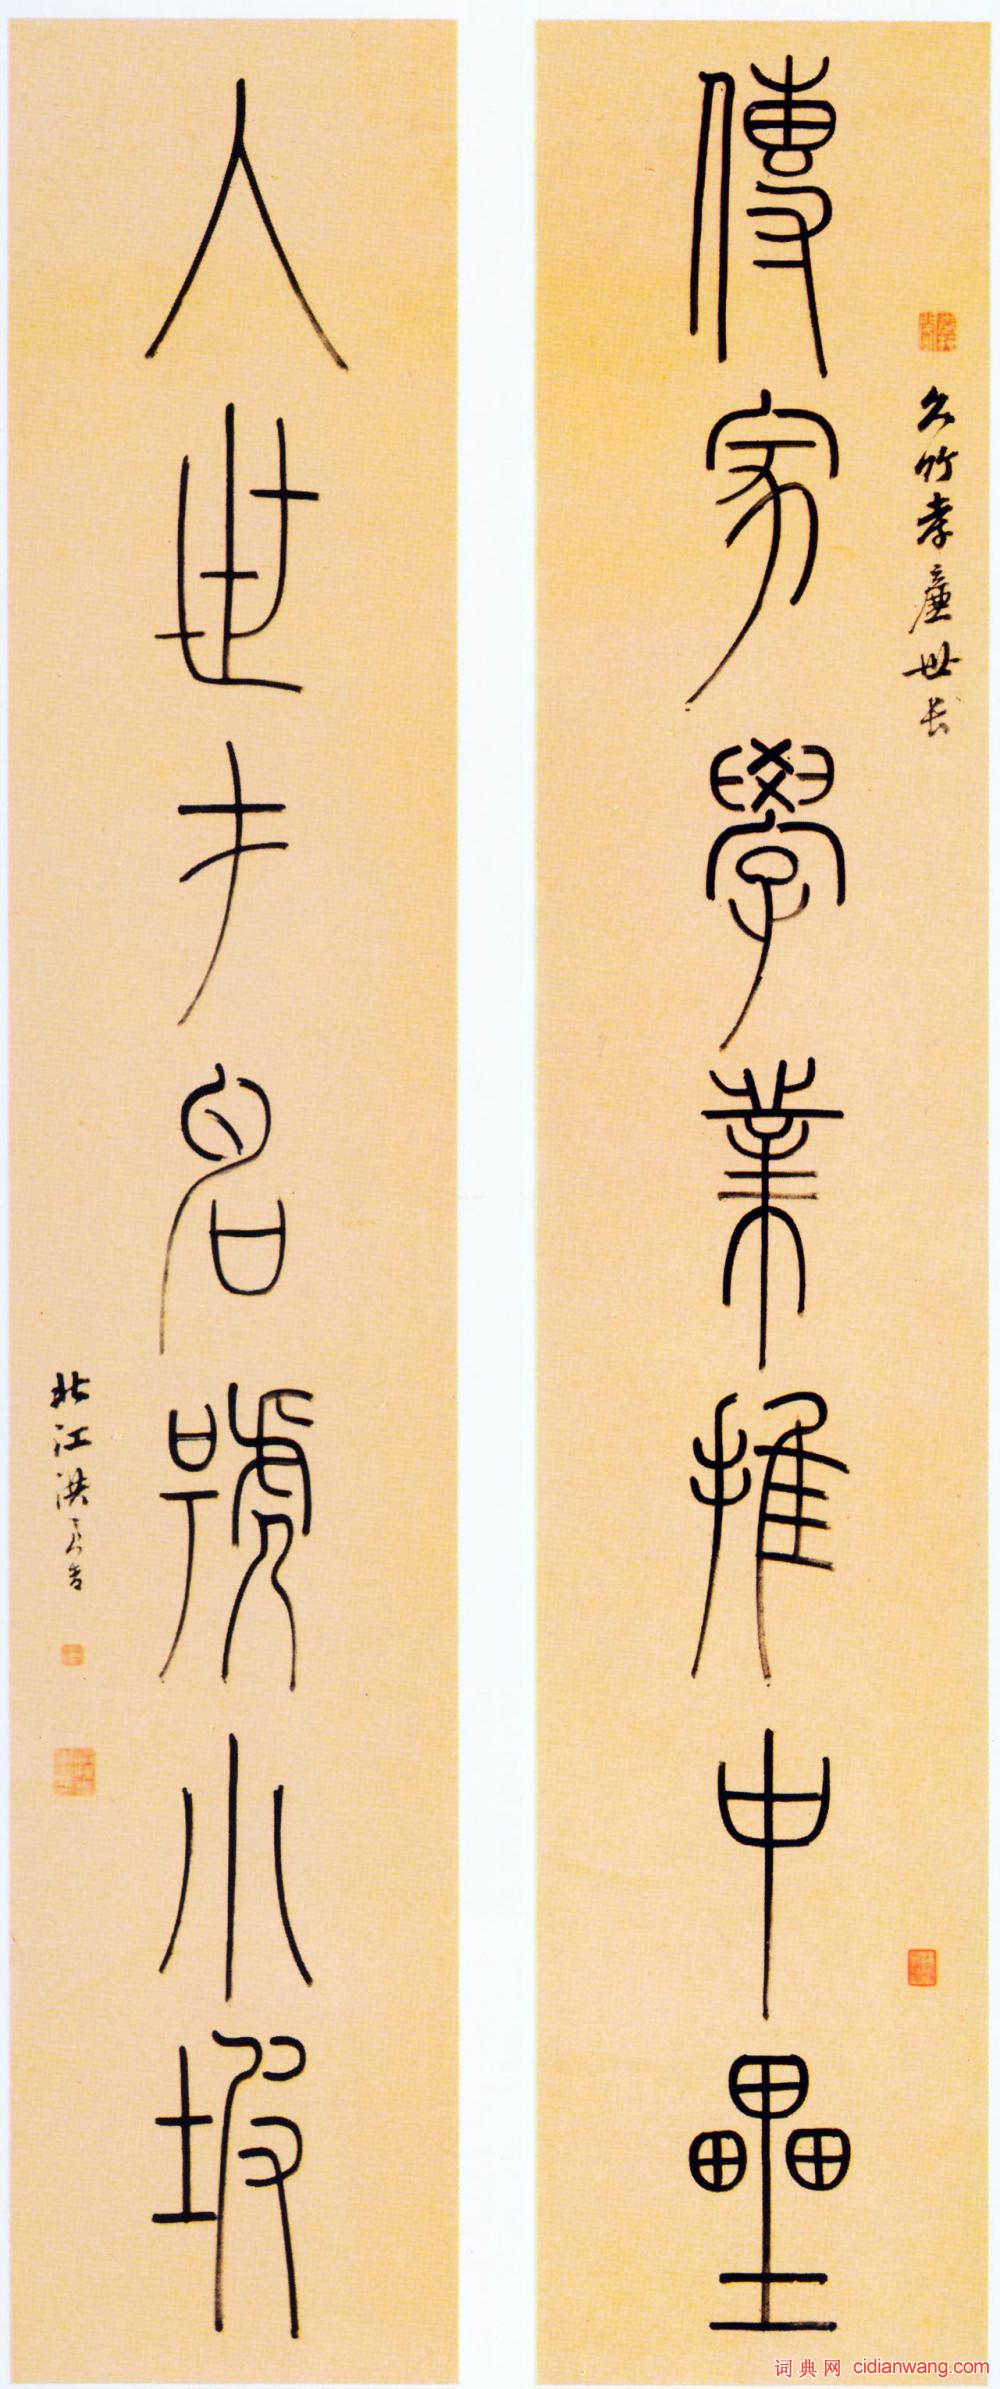 久竹孝廉世長
傳家學業推中壘
入世才名號小坡
北江洪亮吉
词典网 cidianwang.com